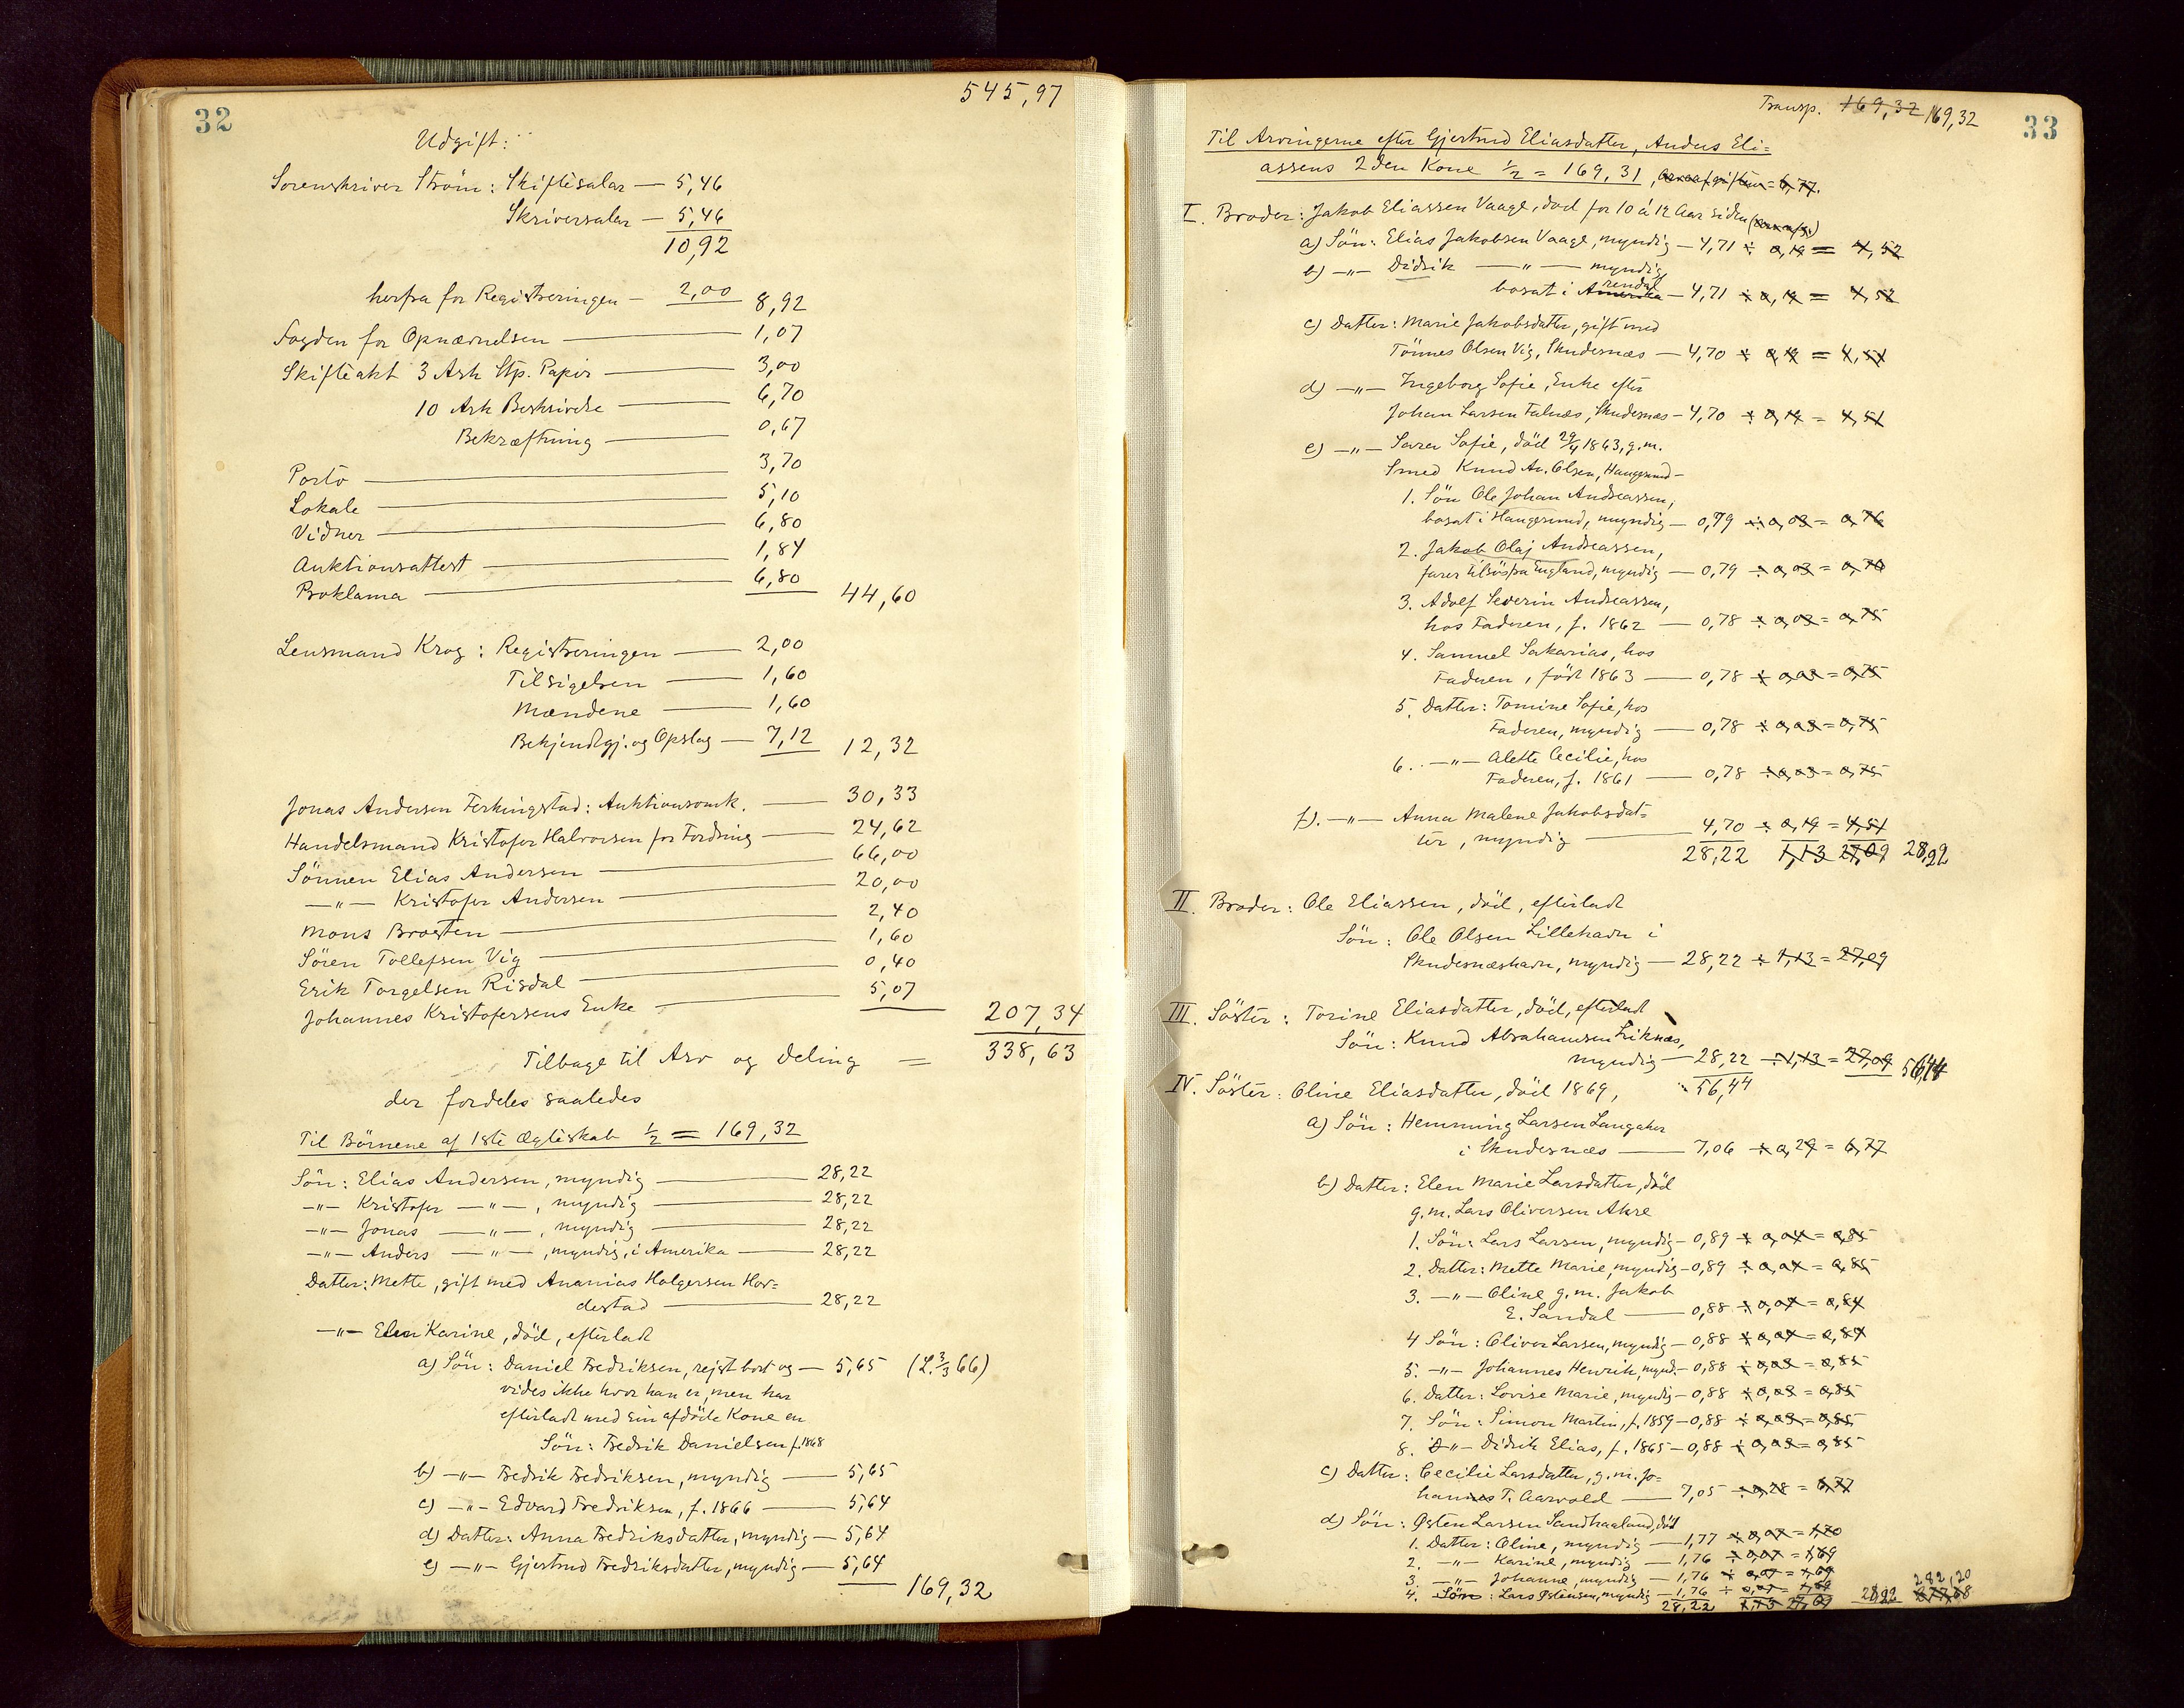 32
545,97
Udgift:
Sorenskriver Ström: Skiftesalar — 5,46
Skriversalar — 5,46
10,92
herfra for Registreringen — 2,00 8,92
Fogden for Opnævnelsen — 1,07
Skifteakt 3 Ark Stp. Papir — 3,00
10 Ark Beskrivelse — 6,70
Bekræftning — 0,67
Porto — 3,70
Lokale — 5,10
Vidner — 6,80
Auktionsattest — 1,84
Proklama — 6,80 44,60
Lensmand Krog: Registreringen — 2,00
Tilsigelsen — 1,60
Mændene — 1,60
Bekjendtgj. og Opslag — 7,12 12,32
Jonas Andersen Ferkingstad: Auktionsomk. — 30,33
Handelsmand Kristofer Halvorsen for Fordring — 24,62
Sönnen Elias Andersen — 66,00
—"— Kristofer Andersen — 20,00
Mons Brosten — 2,40
Sören Tollefsen Vig — 1,60
Erik Torgelsen Risdal — 0,40
Johannes Kristofersens Enke — 5,07
207,34
Tilbage til Arv og Deling = 338,63
der fordeles saaledes
Til Börnene af 1ste Ægteskab ½ = 169,32
Sön: Elias Andersen, myndig — 28,22
—"— Kristofer —"—, myndig — 28,22
—"— Jonas —"—, myndig — 28,22
—"— Anders —"—, myndig, i Amerika — 28,22
Datter: Mette, gift med Ananias Holgersen Hor=
destad — 28,22
—"— Elen Karine, död, efterladt
a) Sön: Daniel Fredriksen, rejst bort og — 5,65 (L. 3/3 66)
vides ikke hvor han er, men har
efterladt med sin afdöde Kone en
Sön: Fredrik Danielsen f. 1868
b) —"— Fredrik Fredriksen, myndig — 5,65
c) —"— Edvard Fredriksen, f. 1866 — 5,64
d) Datter: Anna Fredriksdatter, myndig — 5,64
e) —"— Gjertrud Fredriksdatter, myndig — 5,64
169,32
33
Transp. 169,32 169,32
Til Arvingerne efter Gjertrud Eliasdatter, Anders Eli=
assens 2den Kone ½ = 169,31, = 6,77.
I. Broder: Jakob Eliassen Vaage, död for 10 á 12 Aar siden
a) Sön: Elias Jakobsen Vaage, myndig — 4,71 ÷ 0,19 = 4,52
b) —"— Didrik —"— myndig
bosat i Amerika rendal — 4,71 ÷ 0,19 = 4,52
c) Datter: Marie Jakobsdatter, gift med
Tönnes Olsen Vig, Skudesnæs — 4,70 ÷ 0,19 = 4,51
d) —"— Ingeborg Sofie, Enke efter
Johan Larsen Falnæs, Skudesnæs — 4,70 ÷ 0,19 = 4,51
e) —"— Saren Sofie, död 29/4 1863, g.m.
Smed Knud An. Olsen, Haugesund —
1. Sön Ole Johan Andreassen,
bosat i Haugesund, myndig — 0,79 ÷ 0,03 = 0,76
2. Jakob Olaj Andreassen,
farer tilsös fra England, myndig — 0,79 ÷ 0,03 = 0,76
3. Adolf Severin Andreassen,
hos Faderen, f. 1862 — 0,78 ÷ 0,03 = 0,75
4. Samuel Sakarias, hos
Faderen, födt 1863 — 0,78 ÷ 0,03 = 0,75
5. Datter: Tomine Sofie, hos
Faderen, myndig — 0,78 ÷ 0,03 = 0,75
6. —"— Alette Cecilie, hos
Faderen, f. 1861 — 0,78 ÷ 0,03 = 0,75
f). —"— Anna Malene Jakobsdat=
ter, myndig — 4,70 ÷ 0,19 = 4,51
28,22 1,13 27,09 28,22
II. Broder: Ole Eliassen, död, efterladt
Sön: Ole Olsen Lillehavn i
Skudesneshavn, myndig — 28,22 ÷ 1,13 = 27,09
III. Söster: Torine Eliasdatter, död, efterladt
Sön: Knud Abrahamsen Liknæs,
myndig — 28,22 ÷ 1,13 = 27,09 56,44
56,44
IV. Söster: Oline Eliasdatter, död 1869,
a) Sön: Hemming Larsen Langaker
i Skudesnæs — 7,06 ÷ 0,29 = 6,77
b) Datter: Elen Marie Larsdatter, död
g.m. Lars Oliversen Akre
1. Sön: Lars Larsen, myndig — 0,89 ÷ 0,04 = 0,85
2. Datter: Mette Marie, myndig — 0,89 ÷ 0,04 = 0,85
3. —"— Oline g.m. Jakob
E. Sandal — 0,88 ÷ 0,04 = 0,84
4 Sön: Oliver Larsen, myndig — 0,88 ÷ 0,04 = 0,84
5. —"— Johannes Henrik, mynd. — 0,88 ÷ 0,03 = 0,85
6. Datter: Lovise Marie, myndig — 0,88 ÷ 0,03 = 0,85
7. Sön: Simon Martin, f. 1859 — 0,88 ÷ 0,03 = 0,85
8. —"— Didrik Elias, f. 1865 — 0,88 ÷ 0,03 = 0,85
c) Datter: Cecilie Larsdatter, g.m. Jo=
hannes T. Aarvold — 7,05 ÷ 0,28 = 6,77
d) Sön: Østen Larsen Sandhaaland, död
1. Datter: Oline, myndig — 1,77 ÷ 0,07 = 1,70
2. —"— Karine, myndig — 1,76 ÷ 0,07 = 1,69
3. —"— Johanne, myndig — 1,76 ÷ 0,07 = 1,69
4. Sön: Lars Østensen, myndig — 1,76 ÷ 0,07 = 1,69
28,22 1,13 27,09 28,22 282,20